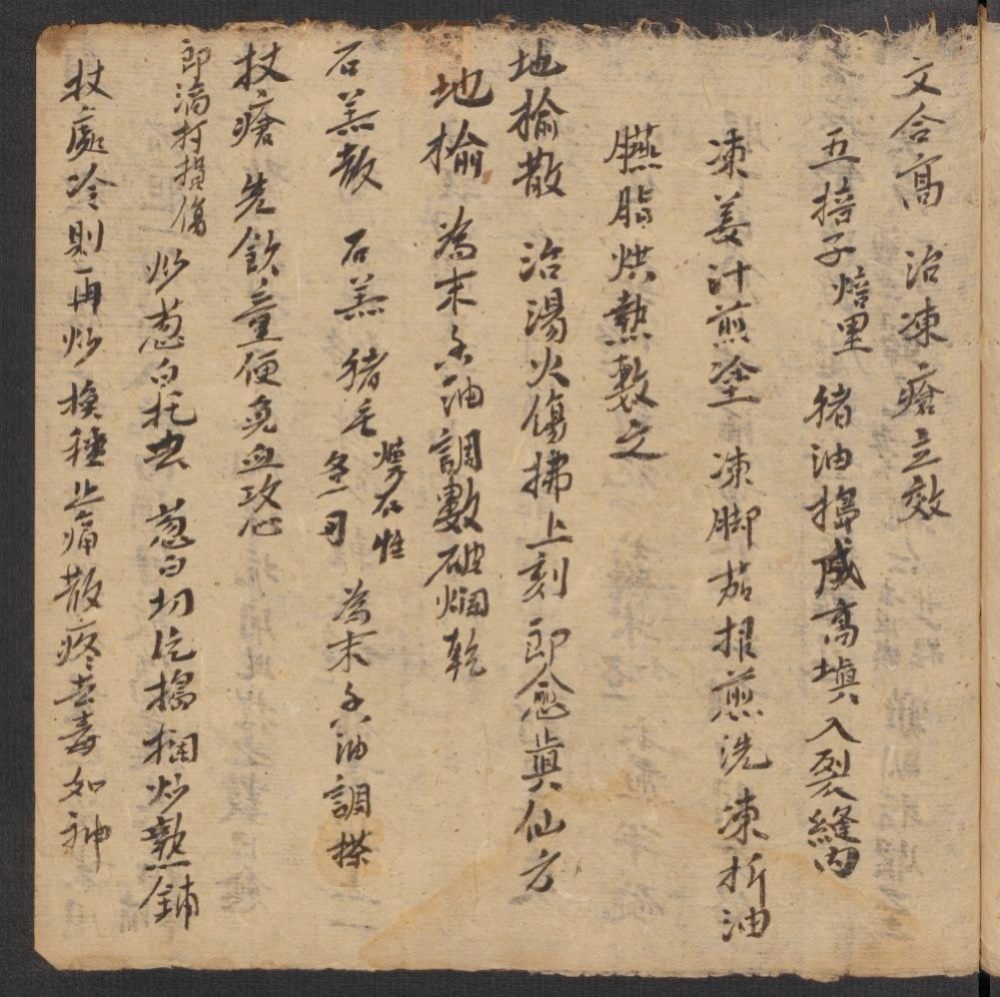 文合膏 治凍瘡立效
五掊子焙黑 猪油搗成膏塡入裂縫內
凍姜汁煎塗凍脚茄根煎洗凍折油
臙脂烘熱敷之
地榆散 治湯火傷拂上刻即愈眞仙方
地榆 為末 油調敷破爛乾
石羔散 石羔 猪毛 煆存性 各一 為末 油調搽
杖瘡 先飲童便免血攻心
即滴打損傷 炒葱白托出 葱白切 搗爛炒熱鋪
杖處冷則再炒換種止痛散疼去毒如神